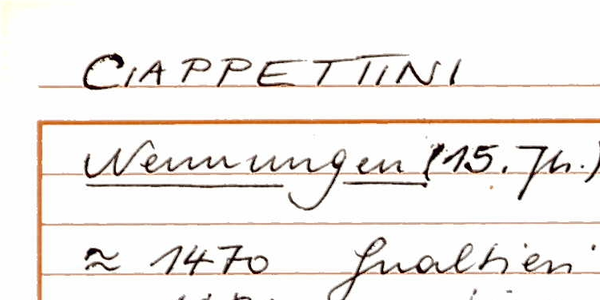 CIAPPETTINI
Nennungen (15. Jh.)
≈ 1470 Gualtieri